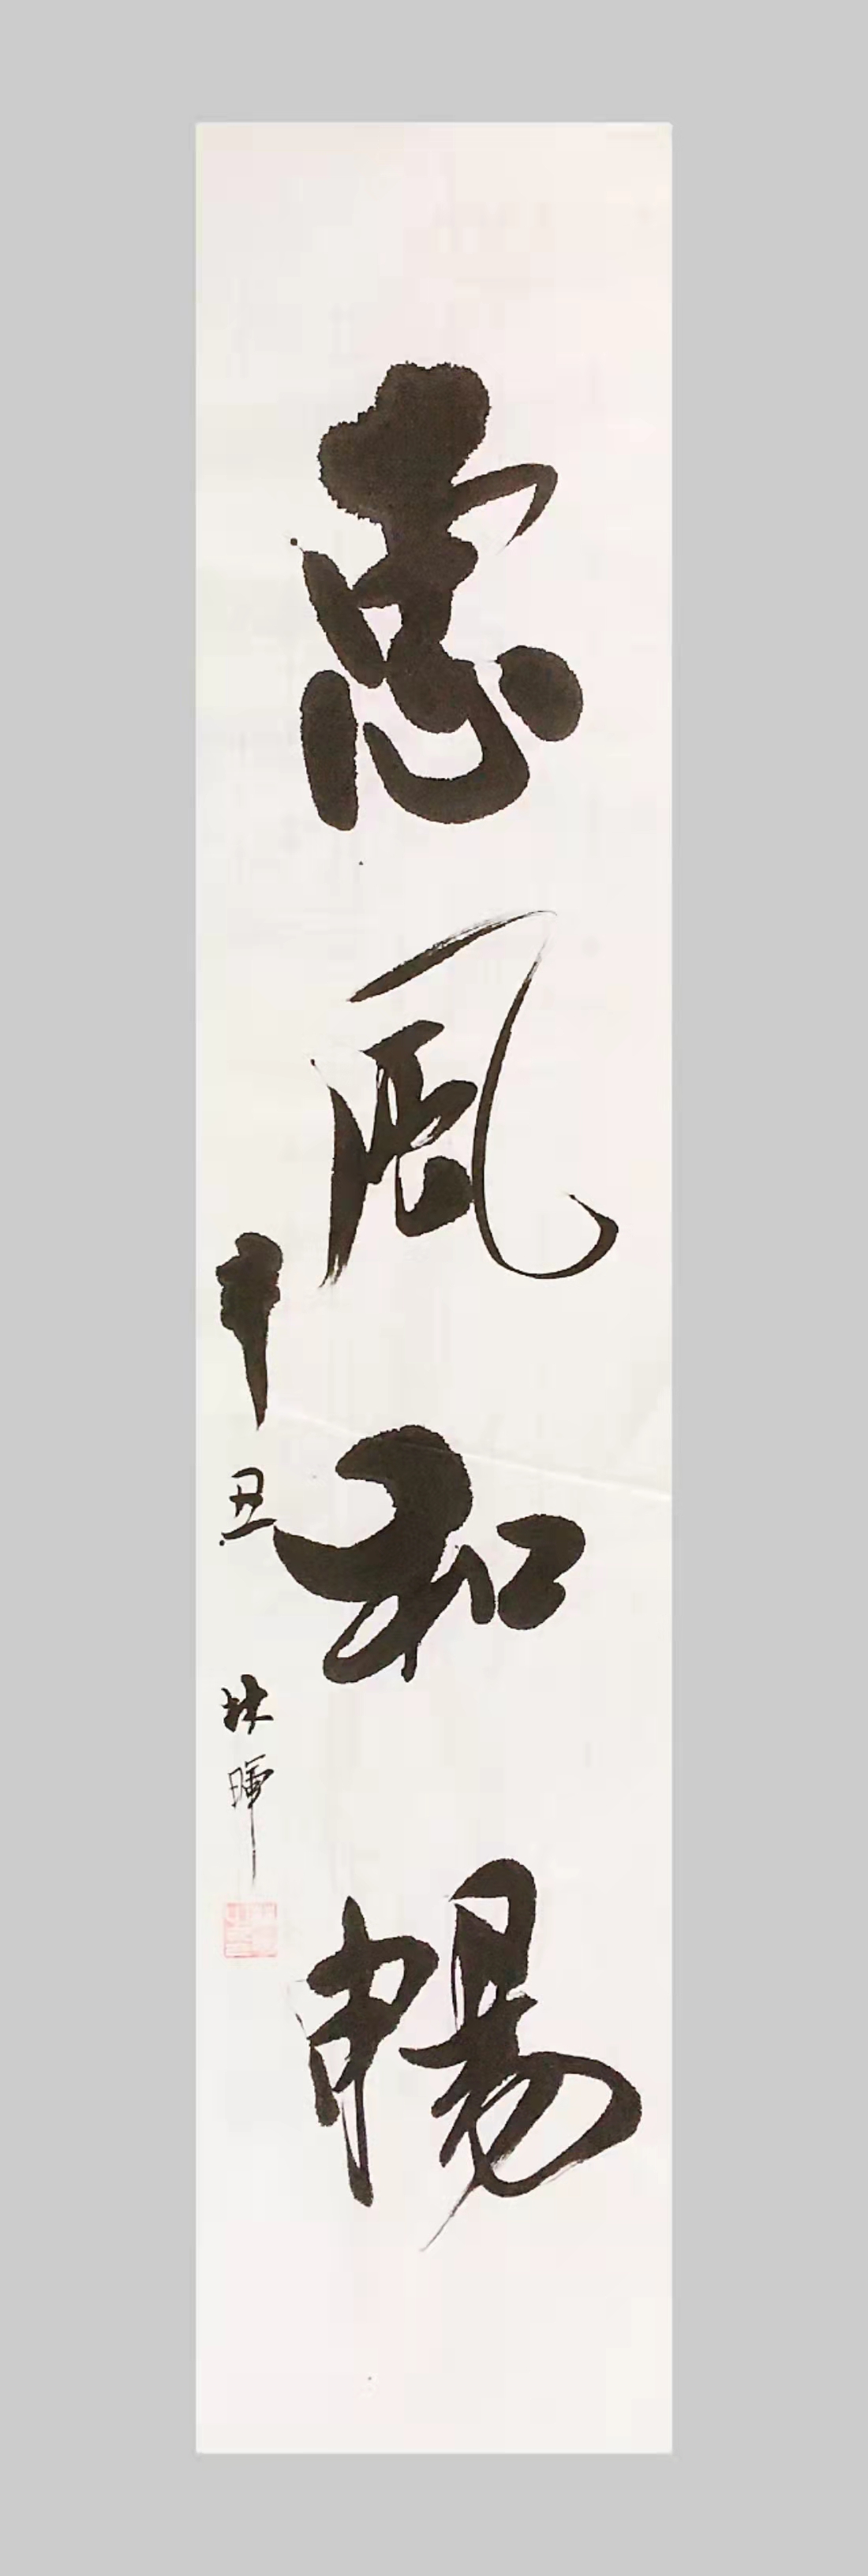 惠風和暢
辛丑 林暉